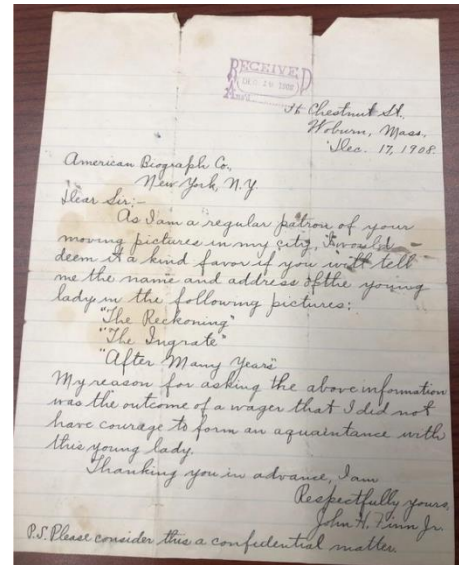 RECEIVED
DEC 1908
Chestnut St.,
Woburn, Mass.,
Dec. 17, 1908.
American Biograph Co.,
New York, N.Y.
Dear Sir;-
As I am a regular patron of your
moving pictures in my city, I would
deem it a kind favor if you will tell
me the name and address of the young
lady in the following pictures:
"The Reckoning"
"The Ingrate"
"After Many Years"
My reason for asking the above information
was the outcome of a wager that I did not
have courage to form an aquaintance with
this young lady.
Thanking you in advance, I am
Respectfully yours,
John H. Finn Jr.
P.S. Please consider this a confidential matter.